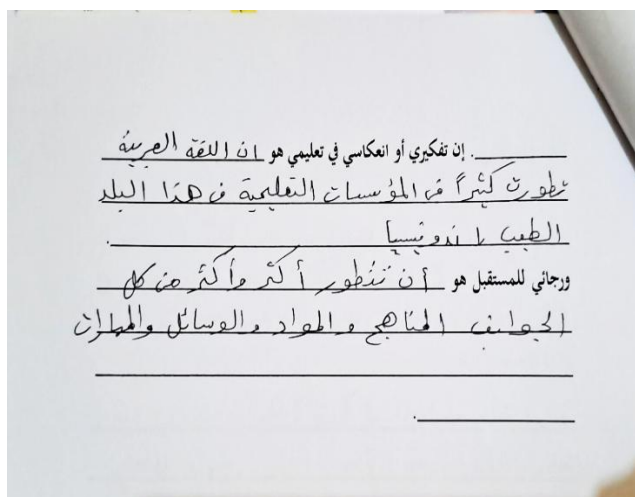 . إن تفكيري أو انعكاسي في تعليمي هو ان اللغة العربية
تطورت كثيراً في المؤسسات التعليمية في هذا البلد
الطيب إندونيسيا .
ورجائي للمستقبل هو أن تتطور أكثر وأكثر من كل
الجوانب المناهج والمواد والوسائل والمهارات
.